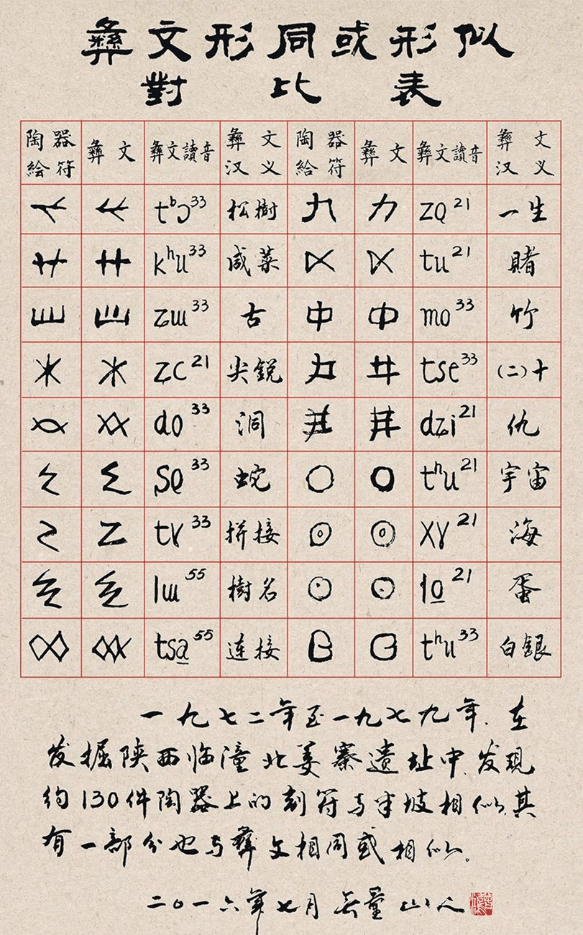 彝文形同或形似
對比表
陶器 彝文 彝文讀音 彝文 陶器 彝文 彝文讀音 彝文
绘符 汉义 給符 汉义
tʰɔ³³ 松樹 zo̱²¹ 一生
kʰu³³ 咸菜 tu²¹ 賭
zɯ³³ 古 中 mo³³ 竹
zc²¹ 尖銳 tse³³ (二)十
do³³ 洞 dzi²¹ 仇
ʂe³³ 蛇 tʰu²¹ 宇宙
tɤ³³ 拼接 xɤ²¹ 海
lɯ⁵⁵ 樹名 lo̱²¹ 蛋
tsa̱⁵⁵ 连接 tʰu³³ 白銀
一九七二年至一九七九年.在
发掘陕西临潼北姜寨遗址中,发现
约130件陶器上的刻符与半坡相似,其
有一部分也与彝文相同或相似。
二〇一六年七月 山人